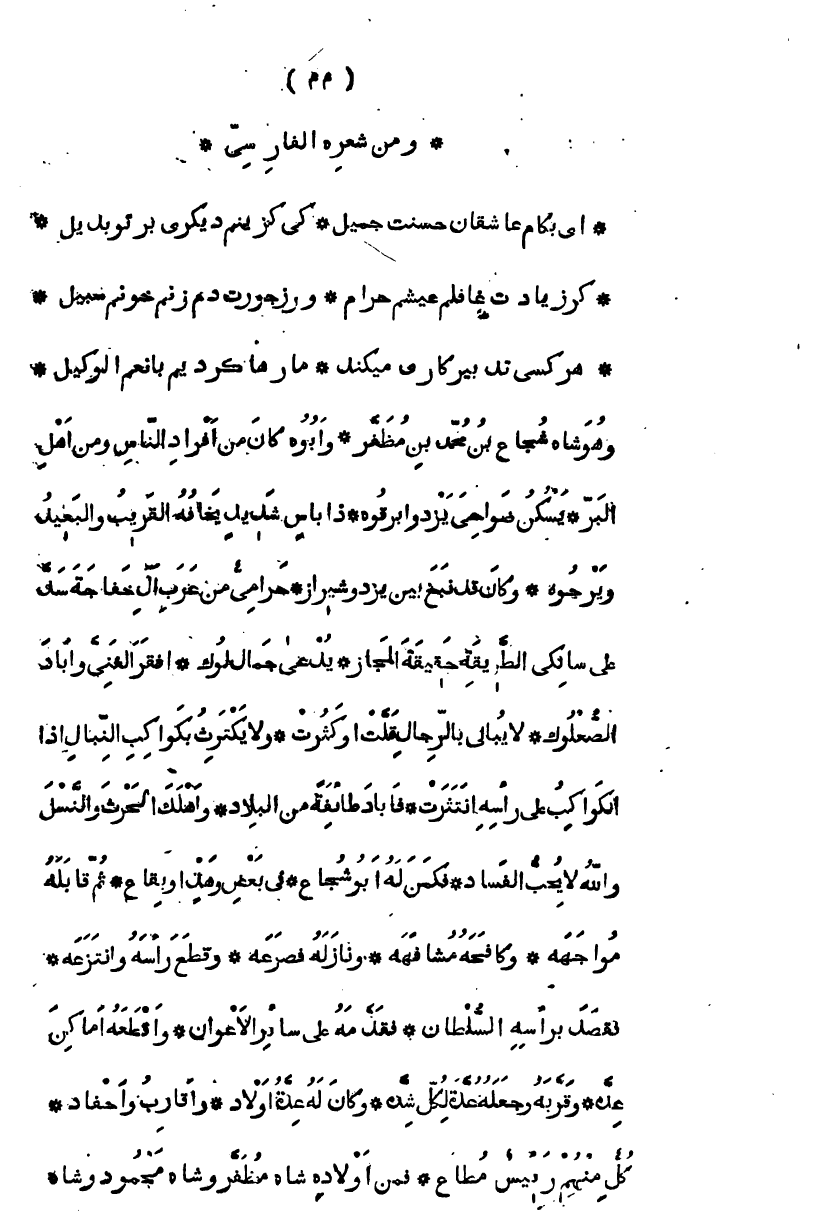 ( ٣٣ )
* ومن شعره الفارِسِيّ *
* ای بکام عاشقان حسنت جمیل * کی کزینم دیکری بر تو بدیل *
* کرز یادت غافلم عیشم حرام * ورز جورت دم زنم خونم سبیل *
* هر کسی تدبیر کاری میکند * ما رها کردیم با نعم الوکیل *
وهُوَ شاه شجاع بنُ محمّد بنِ مُظَفَّر * وأبُوه كانَ من أفْرادِ النّاسِ ومن أهْلِ
البَرّ * يَسْكُنُ ضَواحِىَ يَزْد وابرقوه * ذا باسٍ شَدِيدٍ يَخافُهُ القَرِيبُ والبَعِيدُ
ويَرْجُوه * وكانَ قد نَبَغَ بين يزد وشيراز * حَرامِىٌّ من عَرَبِ آلِ خَفاجَةَ سَدَّ
على سالِكى الطَّرِيقِ حَقِيقَةَ المَجاز * يُدْعىٰ جَمال لوك * افقَرَ الغَنِىَّ وابادَ
الصُّعْلُوك * لا يُبالى بالرّجالِ قَلَّتْ اوكَثُرَتْ * ولا يَكْتَرِثُ بكَواكِبِ النِّبالِ اذا
الكَواكِبُ على رأسِهِ انتَثَرَتْ * فأبادَ طائفَةً من البلاد * وأهْلَكَ الحَرْثَ والنَّسْلَ
واللّٰهُ لا يُحِبُّ الفَساد * فكَمَنَ لَهُ ابو شُجاع * فى بَعْضِ وهادٍ اوبِقاع * ثُمَّ قابلَهُ
مُواجَهَه * وكافَحَهُ مُشافَهَه * ونازَلَهُ فصَرَعَه * وقطَعَ رَأسَهُ وانتَزَعَه *
فقصَدَ برأسِهِ السُّلْطان * فقدَّمَهُ على سائرِ الأعْوان * وأقْطَعَهُ أماكِنَ
عِدَّه * وقَرَّبَهُ وجعَلَهُ عُدَّةً لِكُلِّ شِدَّه * وكانَ لَهُ عِدَّةُ أوْلاد * وأقارِبُ وأحْفاد *
كُلٌّ مِنْهُمْ رَئِيسٌ مُطاع * فمن أوْلادِهِ شاه مُظَفَّر وشاه مَحْمُود وشاه